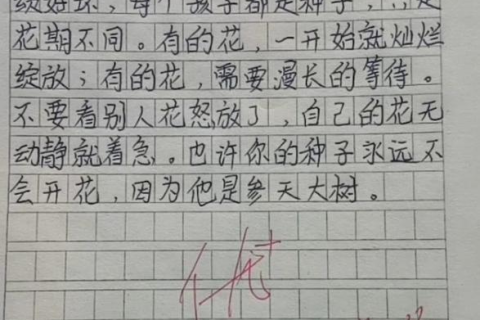 绩好坏，每个孩子都是种子，只是
花期不同。有的花，一开始就灿烂
绽放；有的花，需要漫长的等待。
不要看别人花怒放了，自己的花无
动静就着急。也许你的种子永远不
会开花，因为他是参天大树。
优+